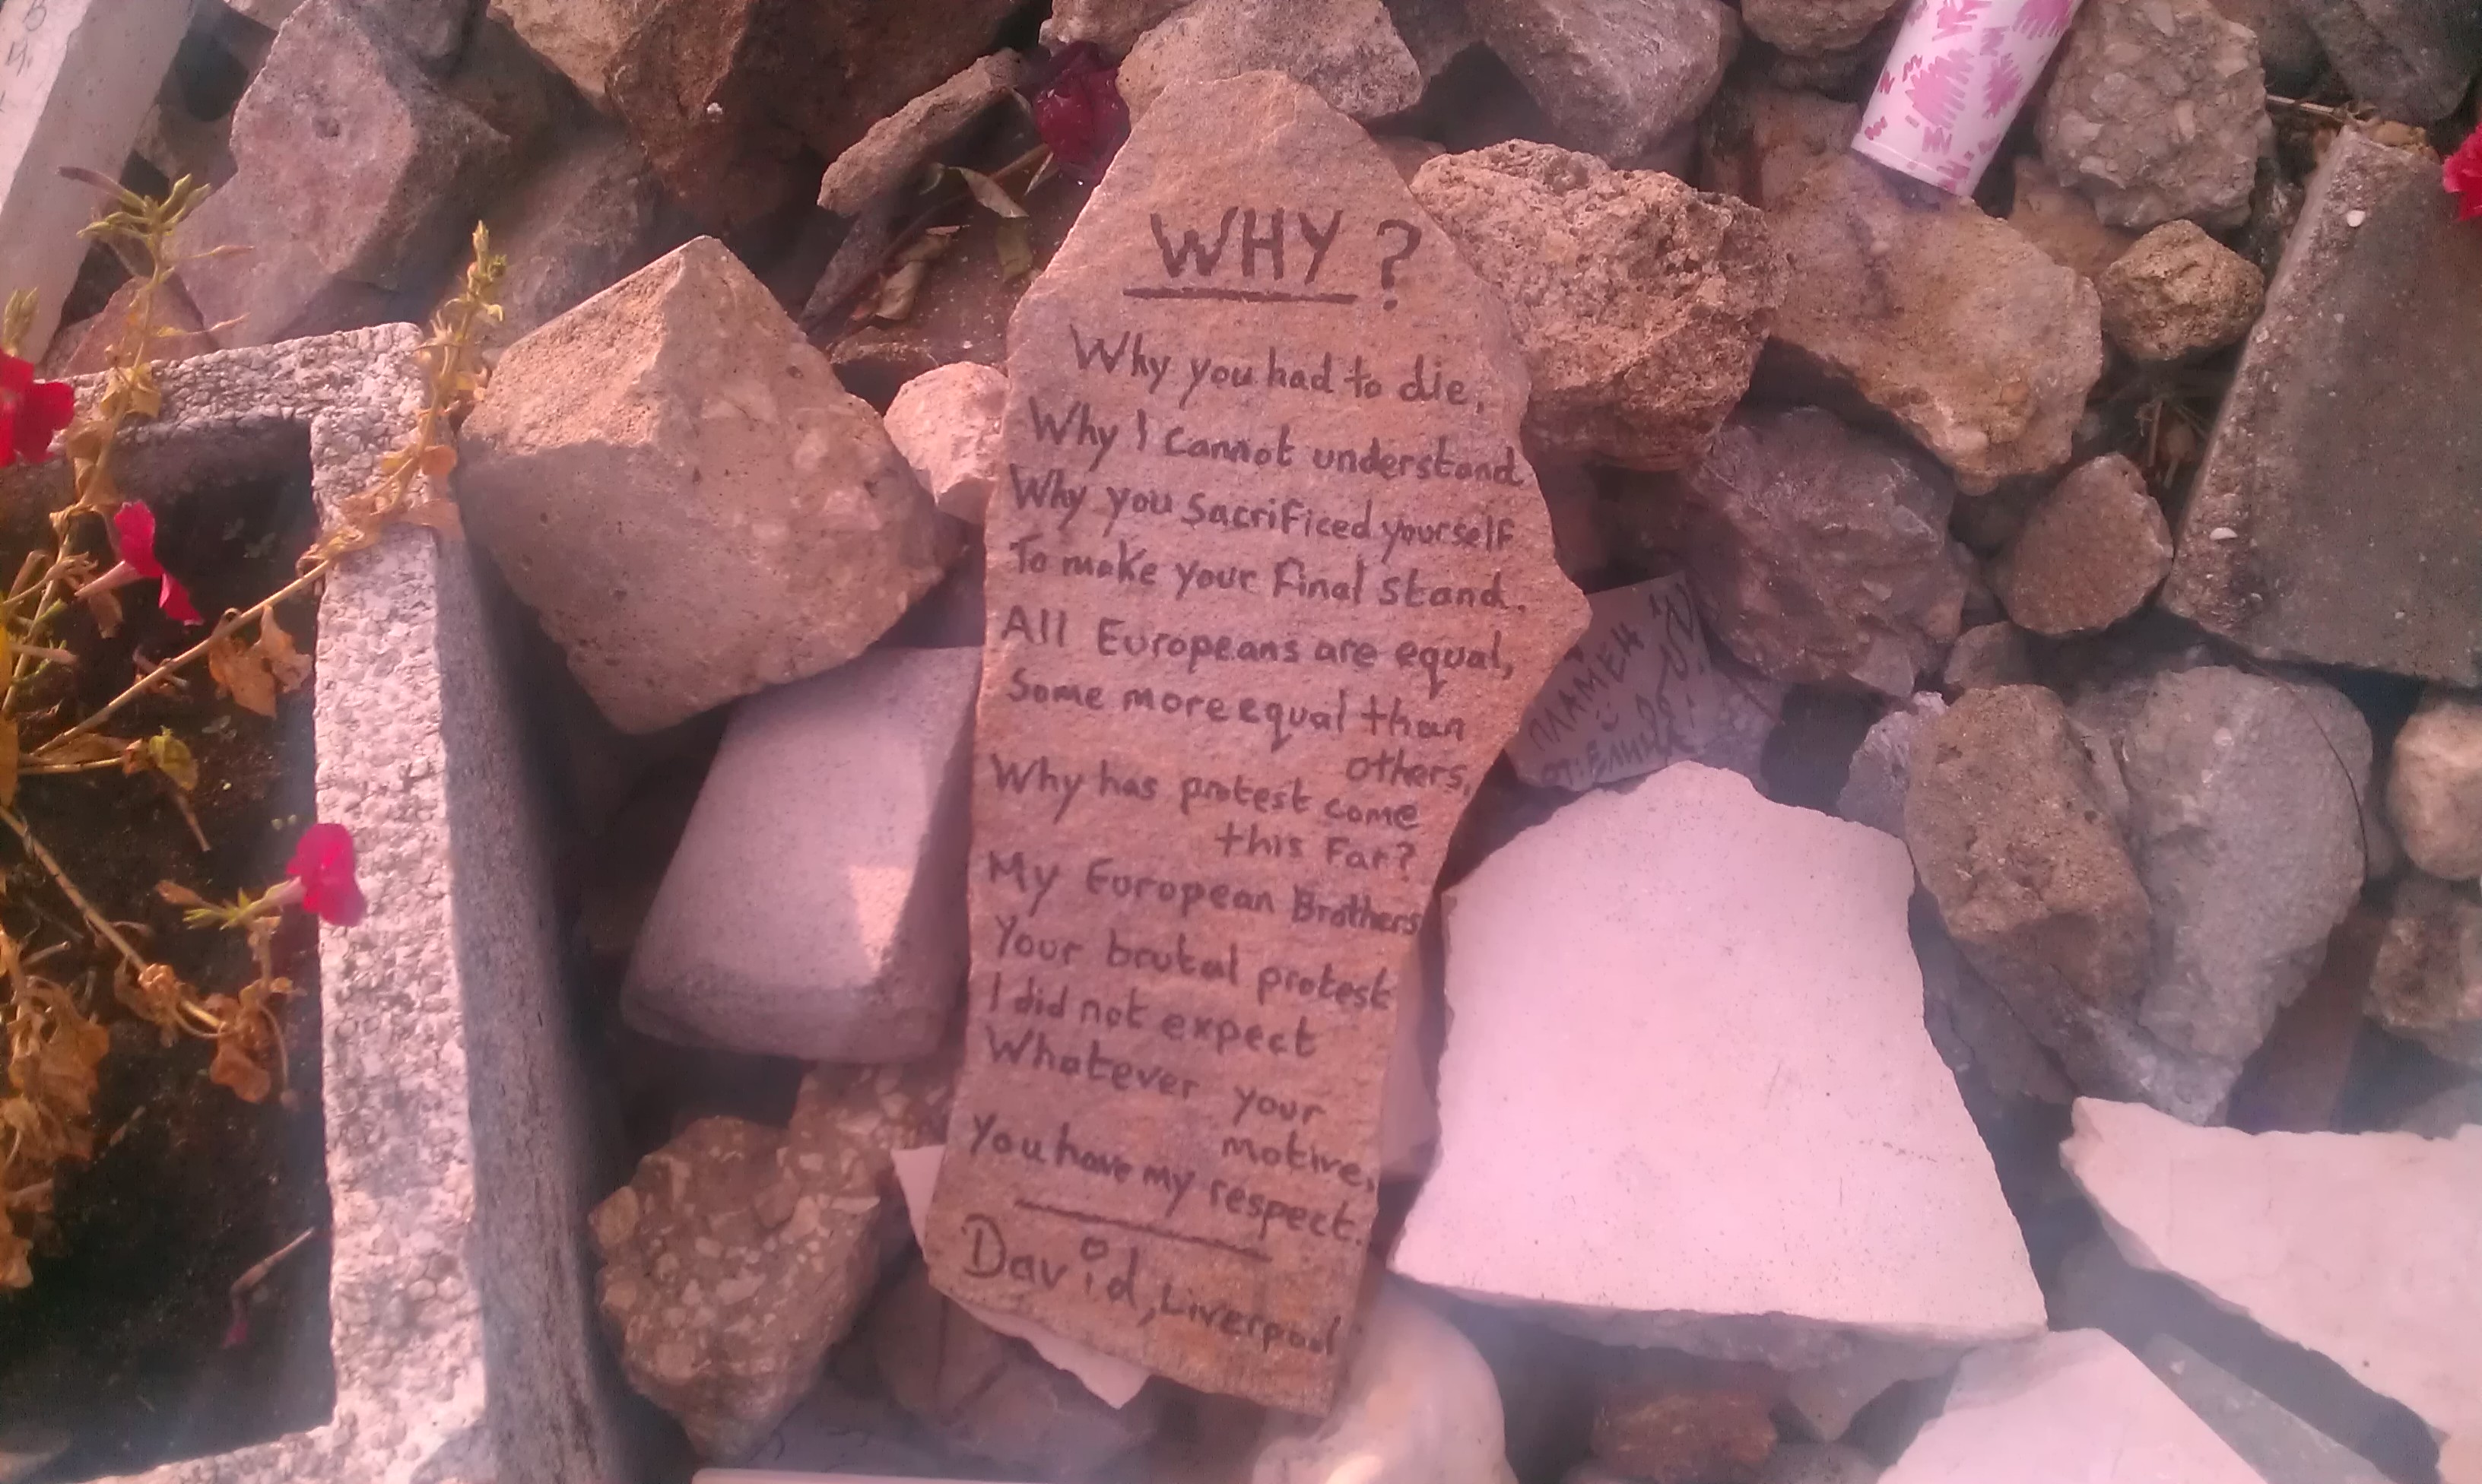 WHY?
Why you had to die,
Why I cannot understand
Why you sacrificed yourself
To make your final stand.
All Europeans are equal,
Some more equal than
others,
Why has protest come
this far?
My European Brothers
Your brutal protest
I did not expect
Whatever your
motive,
You have my respect.
David, Liverpool
ПЛАМЕН